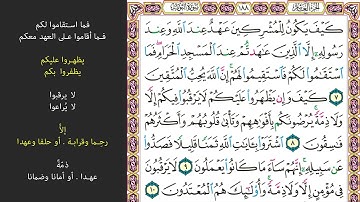 الجزء العاشر
١٨٨
سورة التوبة
كَيْفَ يَكُونُ لِلْمُشْرِكِينَ عَهْدٌ عِندَ ٱللَّهِ وَعِندَ
رَسُولِهِۦٓ إِلَّا ٱلَّذِينَ عَٰهَدتُّمْ عِندَ ٱلْمَسْجِدِ ٱلْحَرَامِ فَمَا
ٱسْتَقَٰمُوا۟ لَكُمْ فَٱسْتَقِيمُوا۟ لَهُمْ إِنَّ ٱللَّهَ يُحِبُّ ٱلْمُتَّقِينَ
٧ كَيْفَ وَإِن يَظْهَرُوا۟ عَلَيْكُمْ لَا يَرْقُبُوا۟ فِيكُمْ إِلًّا
وَلَا ذِمَّةً يُرْضُونَكُم بِأَفْوَٰهِهِمْ وَتَأْبَىٰ قُلُوبُهُمْ وَأَكْثَرُهُمْ
فَٰسِقُونَ ٨ ٱشْتَرَوْا۟ بِـَٔايَٰتِ ٱللَّهِ ثَمَنًا قَلِيلًا فَصَدُّوا۟
عَن سَبِيلِهِۦٓ إِنَّهُمْ سَآءَ مَا كَانُوا۟ يَعْمَلُونَ ٩ لَا يَرْقُبُونَ
فِى مُؤْمِنٍ إِلًّا وَلَا ذِمَّةً وَأُو۟لَٰٓئِكَ هُمُ ٱلْمُعْتَدُونَ ١٠
فما استقاموا لكم
فما أقاموا على العهد معكم
يظهروا عليكم
يظفروا بكم
لا يرقبوا
لا يُراعوا
إلاًّ
رحما وقرابة . أو حلفا وعهدا
ذمّةً
عهدا . أو أمانا وضمانا